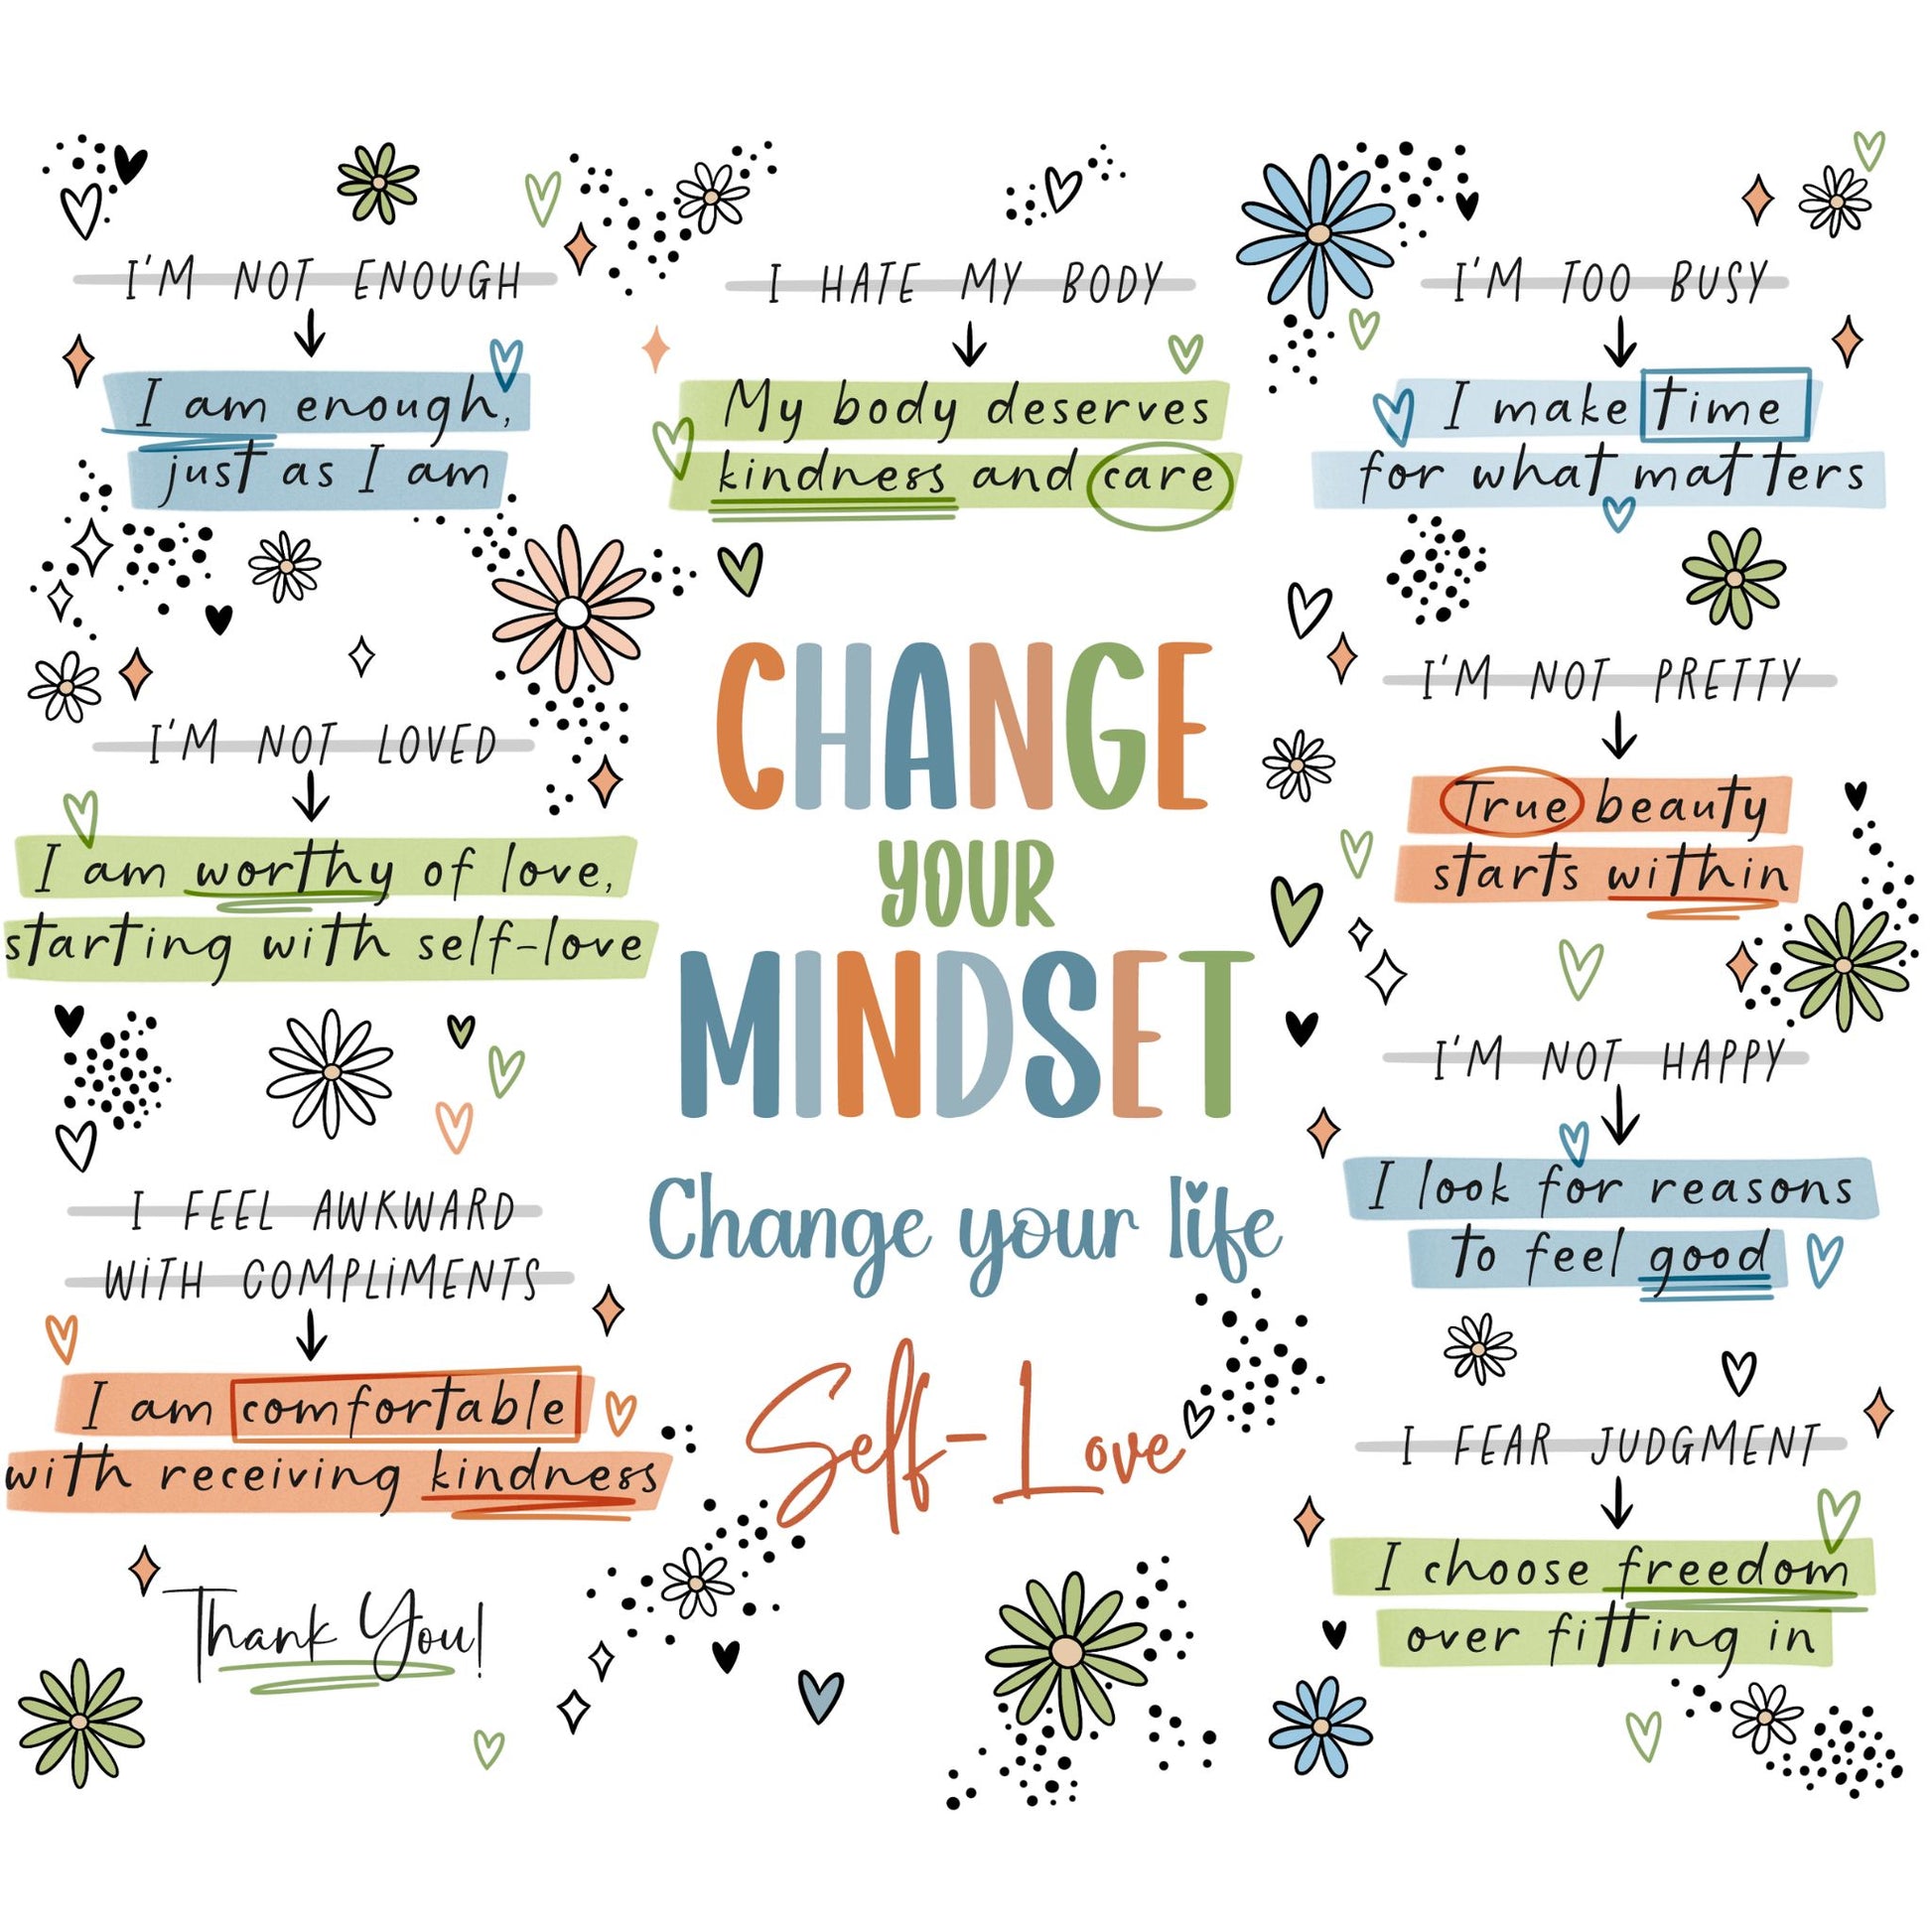 I'M NOT ENOUGH
I am enough,
just as I am
I'M NOT LOVED
I am worthy of love,
starting with self-love
I FEEL AWKWARD
WiTH COMPLiMENTS
I am comfortable
with receiving kindness
Thank You!
I HATE MY BODY
My body deserves
kindness and care
CHANGE
YOUR
MINDSET
Change your life
Self-Love
I'M TOO BUSY
I make time
for what matters
I'M NOT PRETTY
True beauty
starts within
I'M NOT HAPPY
I look for reasons
to feel good
I FEAR JUDGMENT
I choose freedom
over fitting in